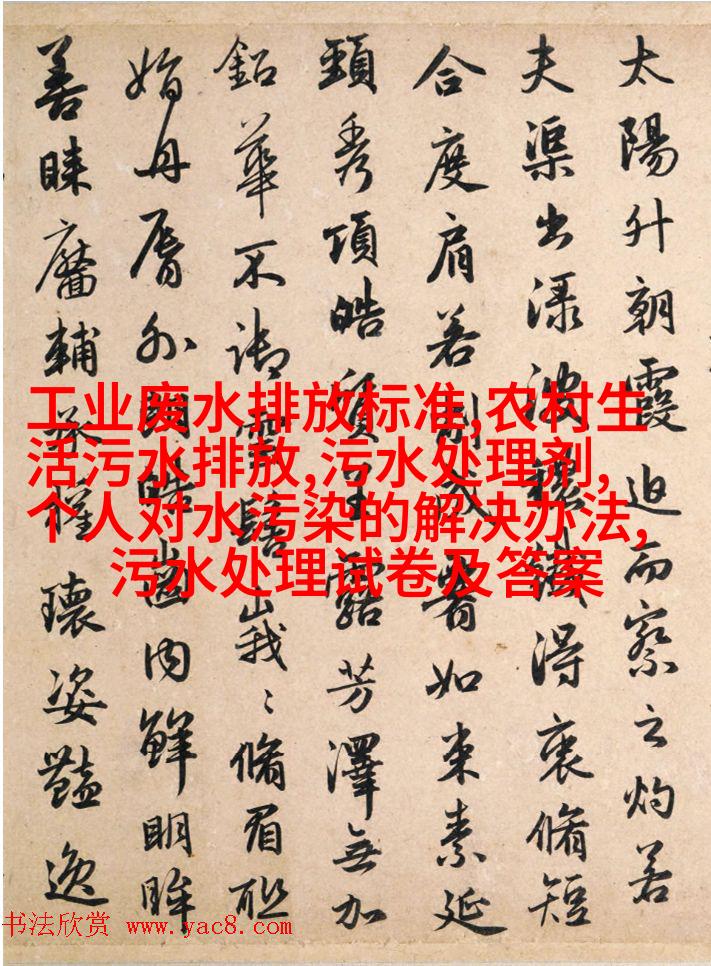 太陽升朝霞迫而察之灼若
夫渠出渌波穠纖得衷脩短
合度肩若削成如束素延
頸秀項皓質呈露芳澤無加
鉛華不御雲髻峩〻脩眉聯
娟丹脣外朗皓齒内鮮明眸
善睞靨輔承權瓌姿豔逸
工业废水排放标准,农村生
活污水排放,污水处理剂,
个人对水污染的解决办法,
污水处理试卷及答案
书法欣赏 www.yac8.com